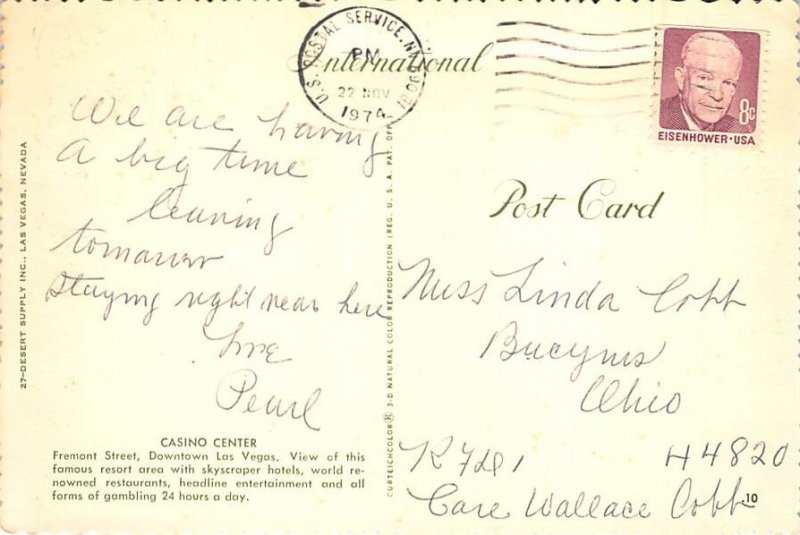 U.S. POSTAL SERVICE, NV
PM
22 NOV
1974
8c
EISENHOWER·USA
International
Post Card
We are having
A big time
leaving
tomarow
Staying right near here
Love
Pearl
Miss Linda Cobb
Bucyrus
Ohio
R Fd 1 44820
Care Wallace Cobb
CASINO CENTER
Fremont Street, Downtown Las Vegas. View of this
famous resort area with skyscraper hotels, world re-
nowned restaurants, headline entertainment and all
forms of gambling 24 hours a day.
27-DESERT SUPPLY INC., LAS VEGAS, NEVADA
CURTEICHCOLOR® 3-D NATURAL COLOR REPRODUCTION (REG. U. S. A. PAT. OFF.
10